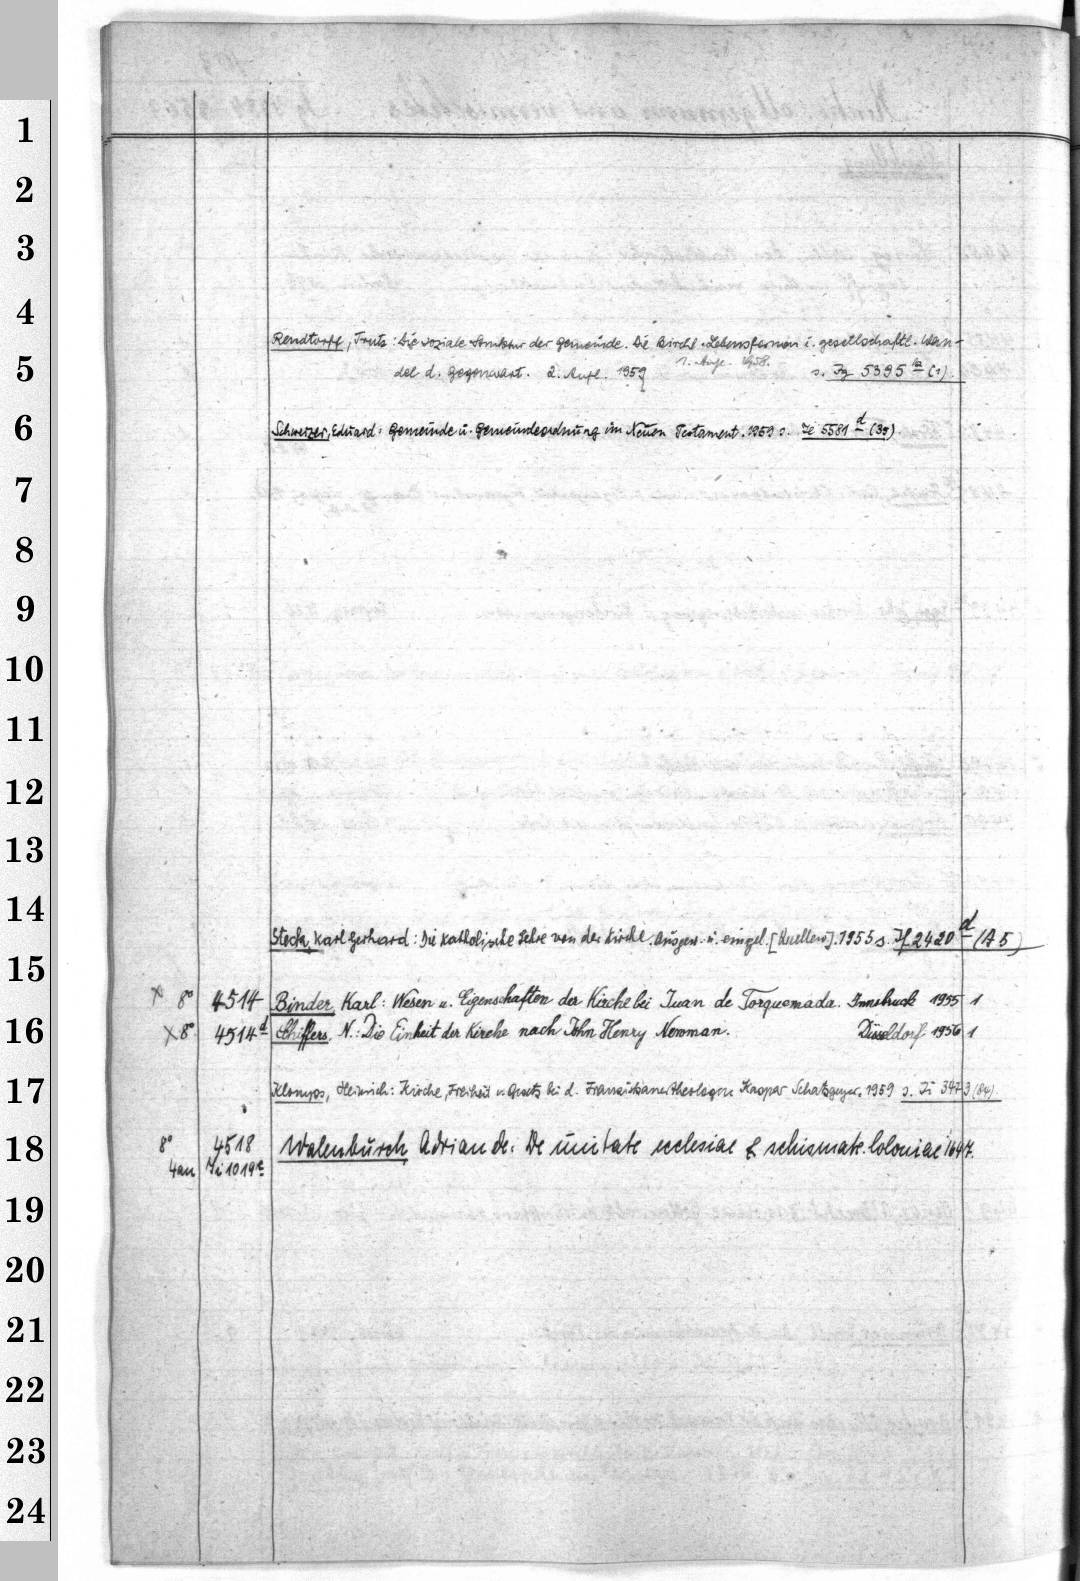 1
2
3
4
Rendtorff, Trutz: Die soziale Struktur der Gemeinde. Die kirchl. Lebensformen i. gesellschaftl. Wan-
5
del d. Gegenwart. 2. Aufl. 1959 1. Aufl. 1958. s. Ig 5395 (1)
6
Schweizer, Eduard: Gemeinde u. Gemeindeordnung im Neuen Testament. 1959 s. Ie 5581 d (35)
7
8
9
10
11
12
13
14
Steck, Karl Gerhard: Die katholische Lehre von der Kirche. Ausgew. u. eingel. [Quellen]. 1955 s. If 2420 d (A 5)
15
x 8° 4514 Binder, Karl: Wesen u. Eigenschaften der Kirche bei Juan de Torquemada. Innsbruck 1955 1
16
x 8° 4514 d Schiffers, N.: Die Einheit der Kirche nach John Henry Newman. Düsseldorf 1956 1
17
Klomps, Heinrich: Kirche, Freiheit u. Gesetz bei d. Franziskanertheologen Kaspar Schatzgeyer. 1959 s. Ii 3473 (84)
18
8° 4518 Walenburch Adrian de: De unitate ecclesiae & schismate. Coloniae 1647.
4an Ii 1019
19
20
21
22
23
24